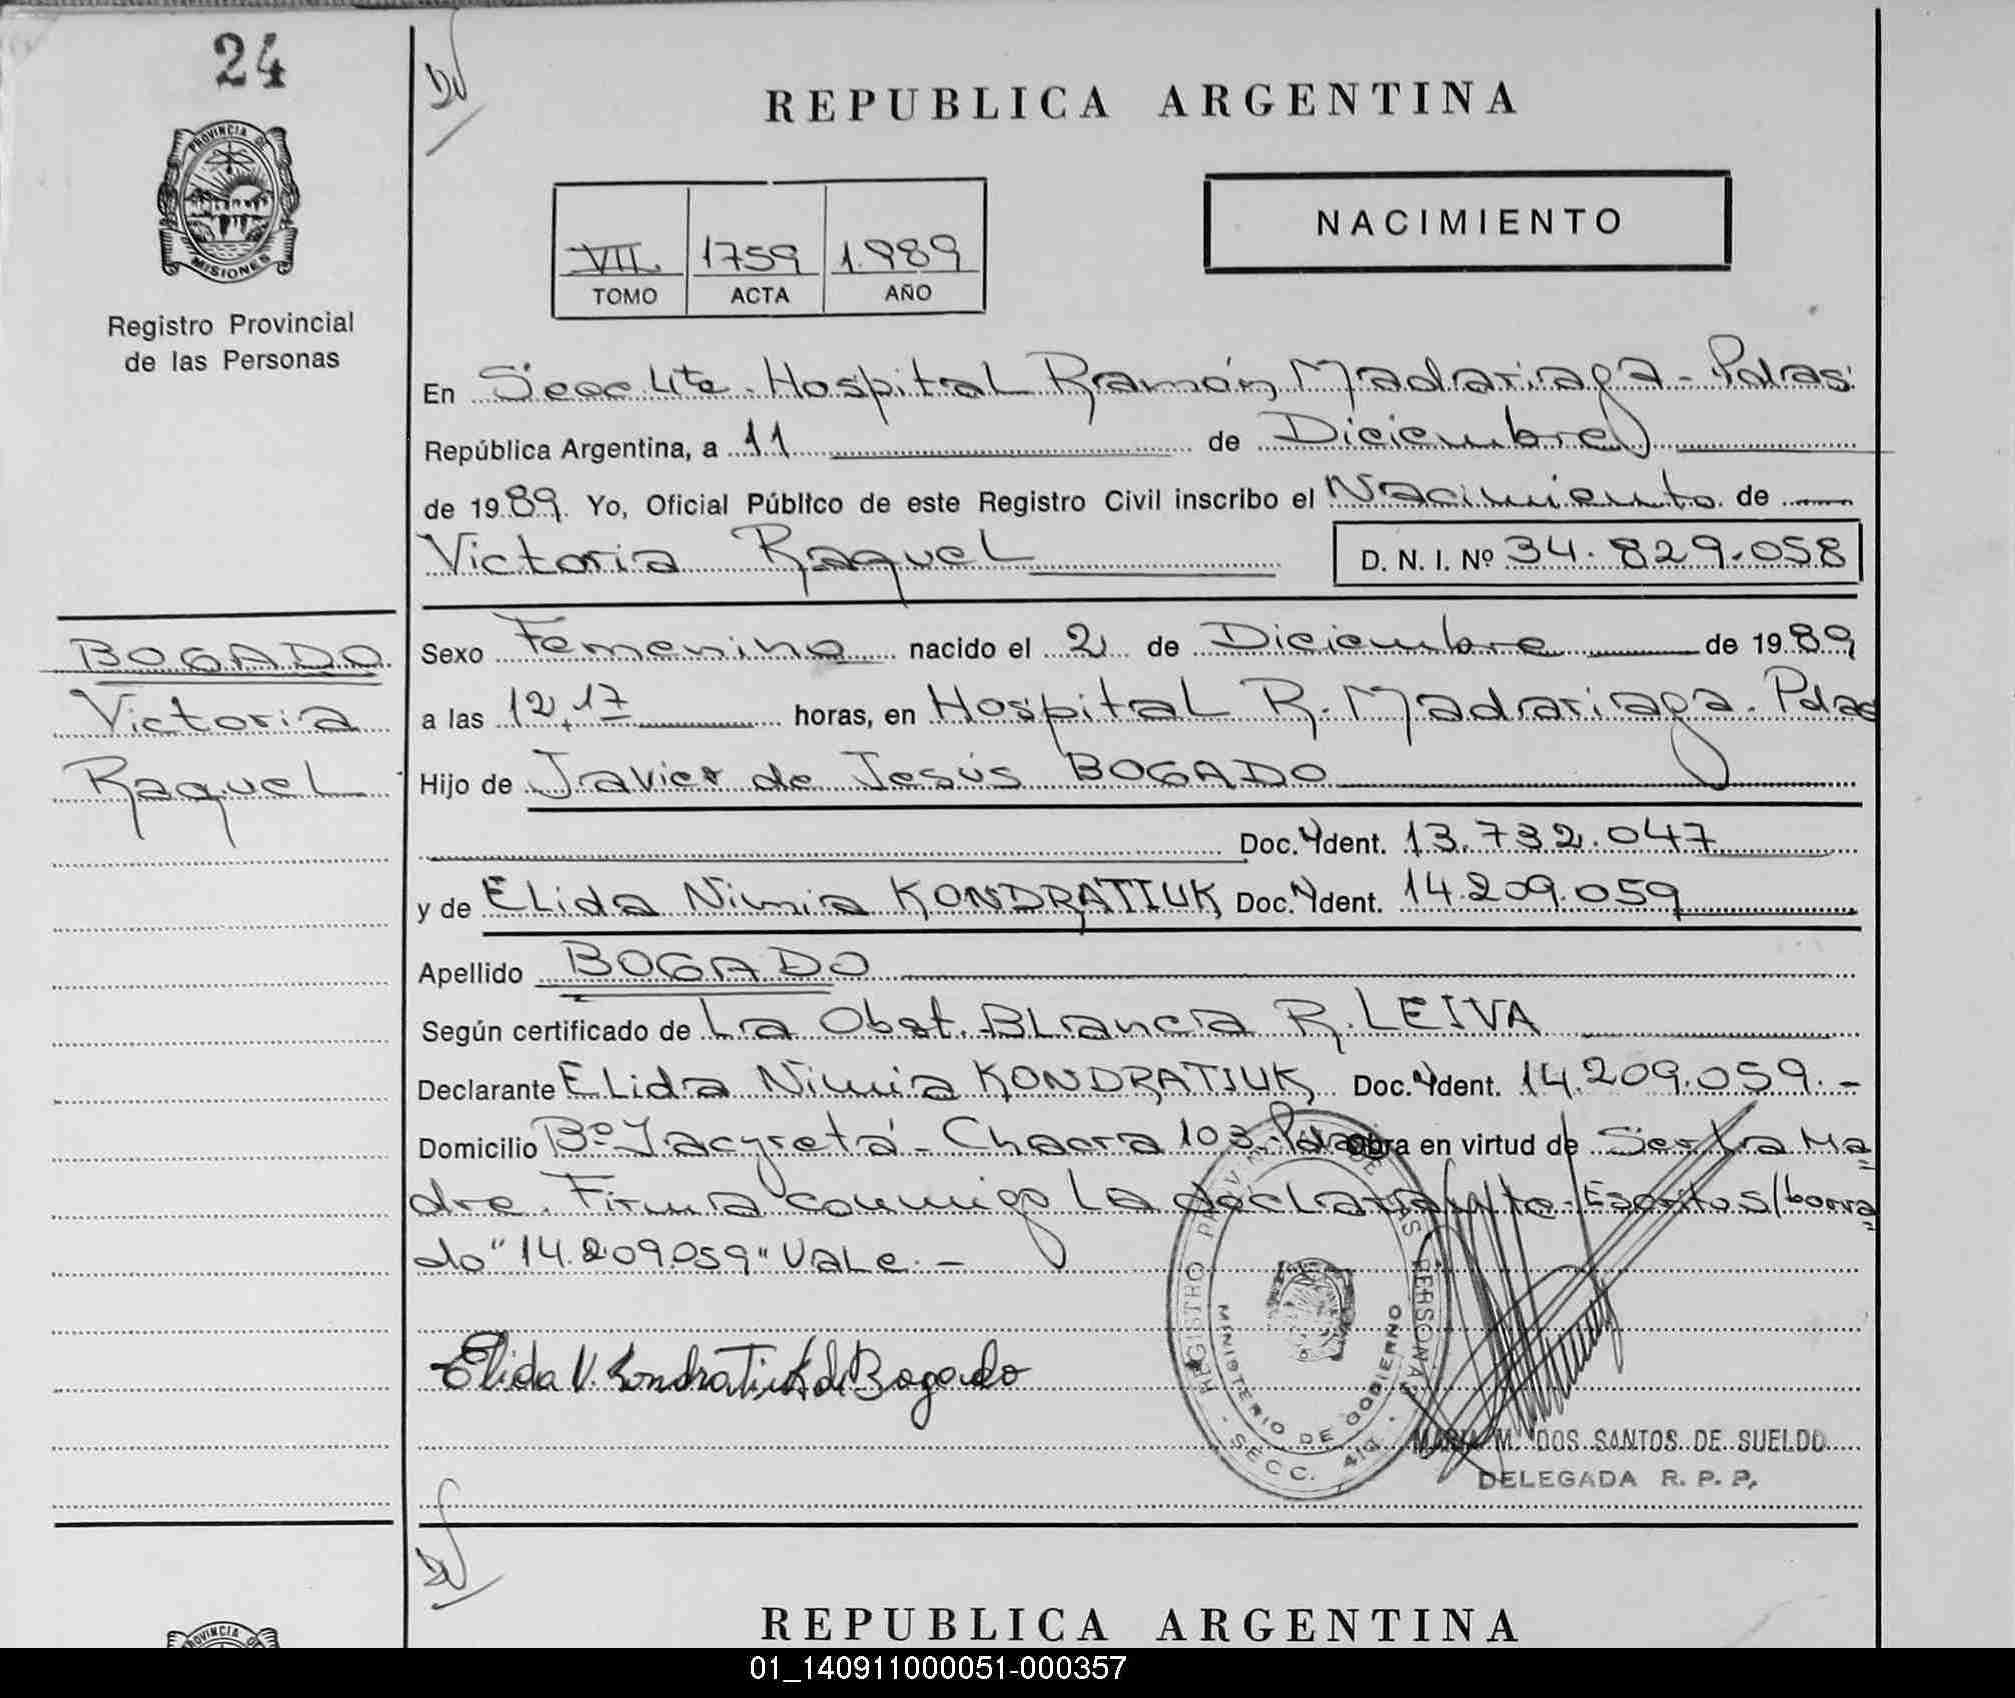 24
PROVINCIA DE
MISIONES
Registro Provincial
de las Personas
REPUBLICA ARGENTINA
VII. 1759 1.989
TOMO ACTA AÑO
NACIMIENTO
En Secc 4ta. Hospital Ramón Madariaga - Pdas.
República Argentina, a 11 de Diciembre
de 1989. Yo, Oficial Público de este Registro Civil inscribo el Nacimiento de
Victoria Raquel D. N. I. Nº 34.829.058
BOGADO
Victoria
Raquel
Sexo Femenino nacido el 2 de Diciembre de 1989
a las 12,17 horas, en Hospital R. Madariaga. Pdas
Hijo de Javier de Jesús BOGADO
Doc. Ydent. 13.732.047
y de ELida Nimia KONDRATIUK Doc. Ydent. 14.209.059
Apellido BOGADO
Según certificado de La Obst. BLanca R. LEIVA
Declarante ELida Nimia KONDRATIUK Doc. Ydent. 14.209.059.-
Domicilio Bº Yacyretá - Chacra 103 - Pdas obra en virtud de Ser La Ma=
dre. Firma conmigo La decLarante. Escrito s/borra=
do "14.209.059" VaLe.-
Elida N. Kondratiuk de Bogado
REGISTRO PROV. DE LAS PERSONAS
MINISTERIO DE GOBIERNO
SECC. 4ta.
MARIA M. DOS SANTOS DE SUELDO
DELEGADA R. P. P.
PROVINCIA DE
REPUBLICA ARGENTINA
01_140911000051-000357